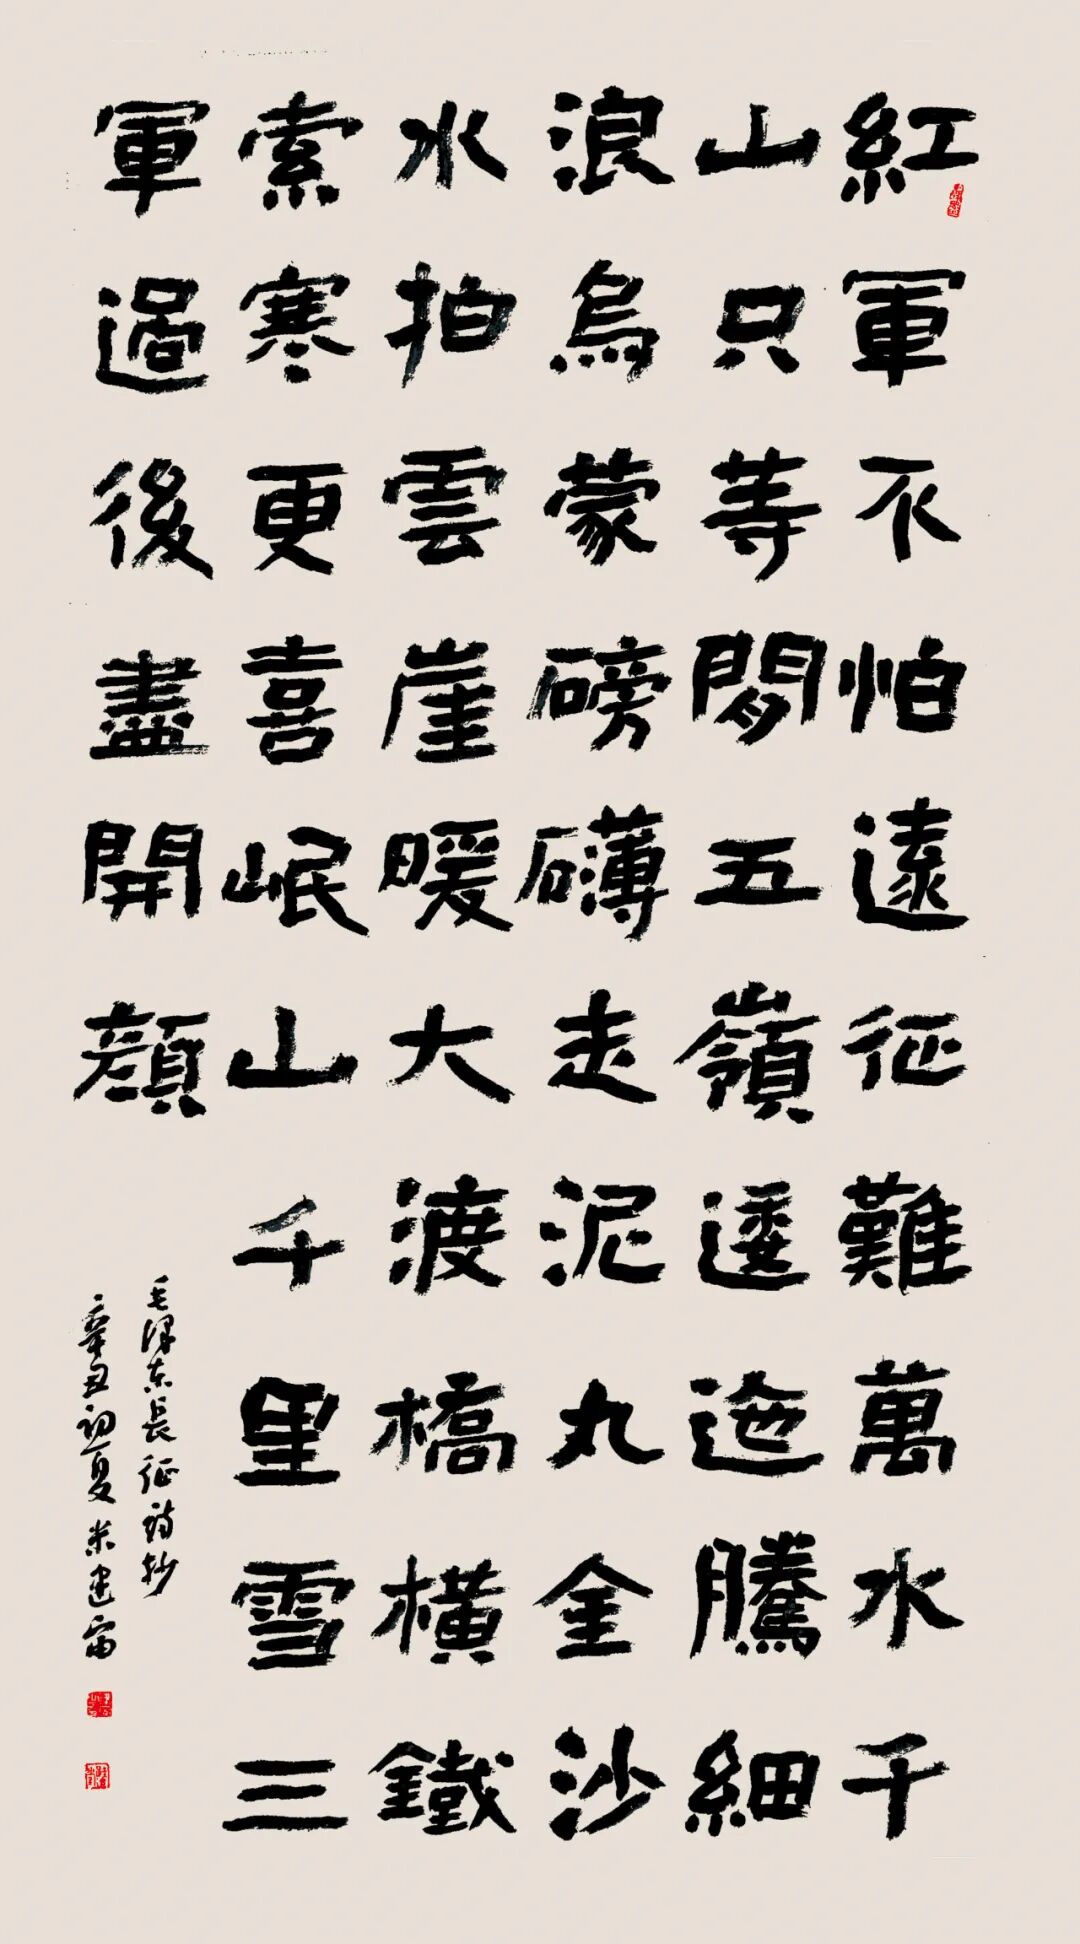 紅軍不怕遠征難萬水千
山只等閒五嶺逶迤騰細
浪烏蒙磅礴走泥丸金沙
水拍雲崖暖大渡橋橫鐵
索寒更喜岷山千里雪三
軍過後盡開顏
毛澤東長征詩抄
辛丑初夏米建